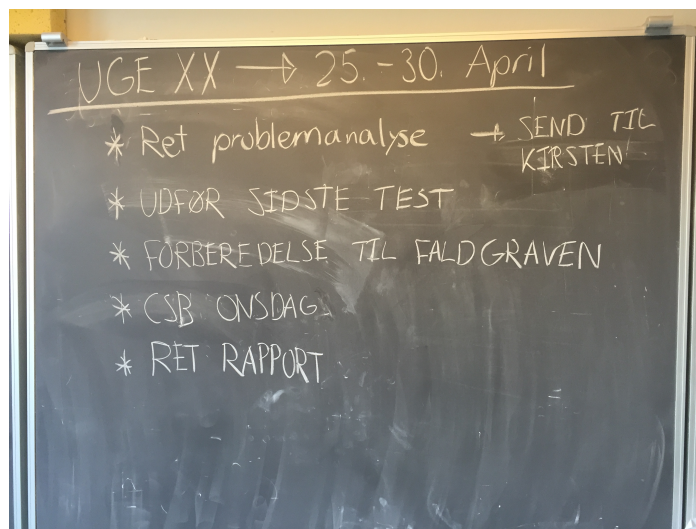 UGE XX → 25.-30. April
* Ret problemanalyse → SEND TIL
KIRSTEN
* UDFØR SIDSTE TEST
* FORBEREDELSE TIL FALDGRAVEN
* CSB ONSDAG
* RET RAPPORT